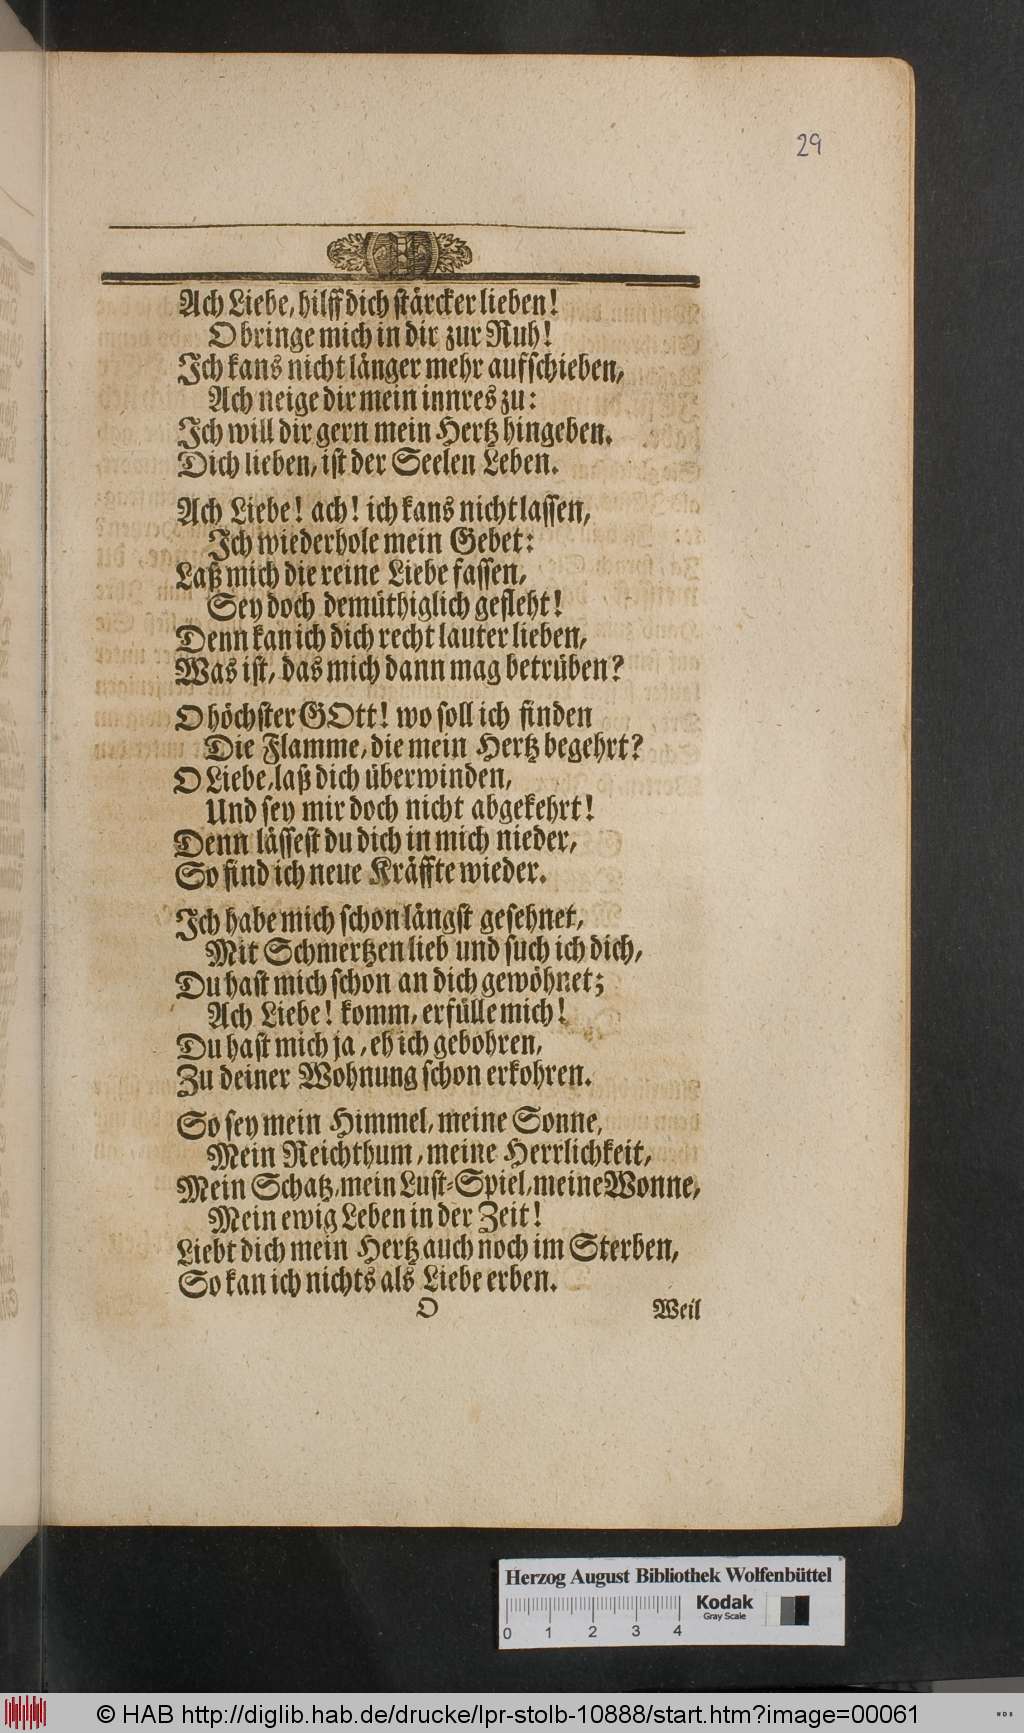 29
Ach Liebe, hilff dich stärcker lieben!
O bringe mich in dir zur Ruh!
Ich kans nicht länger mehr aufschieben,
Ach neige dir mein innres zu:
Ich will dir gern mein Hertz hingeben.
Dich lieben, ist der Seelen Leben.
Ach Liebe! ach! ich kans nicht lassen,
Ich wiederhole mein Gebet:
Laß mich die reine Liebe fassen,
Sey doch demüthiglich gefleht!
Denn kan ich dich recht lauter lieben,
Was ist, das mich dann mag betrüben?
O höchster GOtt! wo soll ich finden
Die Flamme, die mein Hertz begehrt?
O Liebe, laß dich überwinden,
Und sey mir doch nicht abgekehrt!
Denn lässest du dich in mich nieder,
So find ich neue Kräffte wieder.
Ich habe mich schon längst gesehnet,
Mit Schmertzen lieb und such ich dich,
Du hast mich schon an dich gewöhnet;
Ach Liebe! komm, erfülle mich!
Du hast mich ja, eh ich gebohren,
Zu deiner Wohnung schon erkohren.
So sey mein Himmel, meine Sonne,
Mein Reichthum, meine Herrlichkeit,
Mein Schatz, mein Lust-Spiel, meine Wonne,
Mein ewig Leben in der Zeit!
Liebt dich mein Hertz auch noch im Sterben,
So kan ich nichts als Liebe erben.
O Weil
Herzog August Bibliothek Wolfenbüttel
Kodak
Gray Scale
0 1 2 3 4
© HAB http://diglib.hab.de/drucke/lpr-stolb-10888/start.htm?image=00061